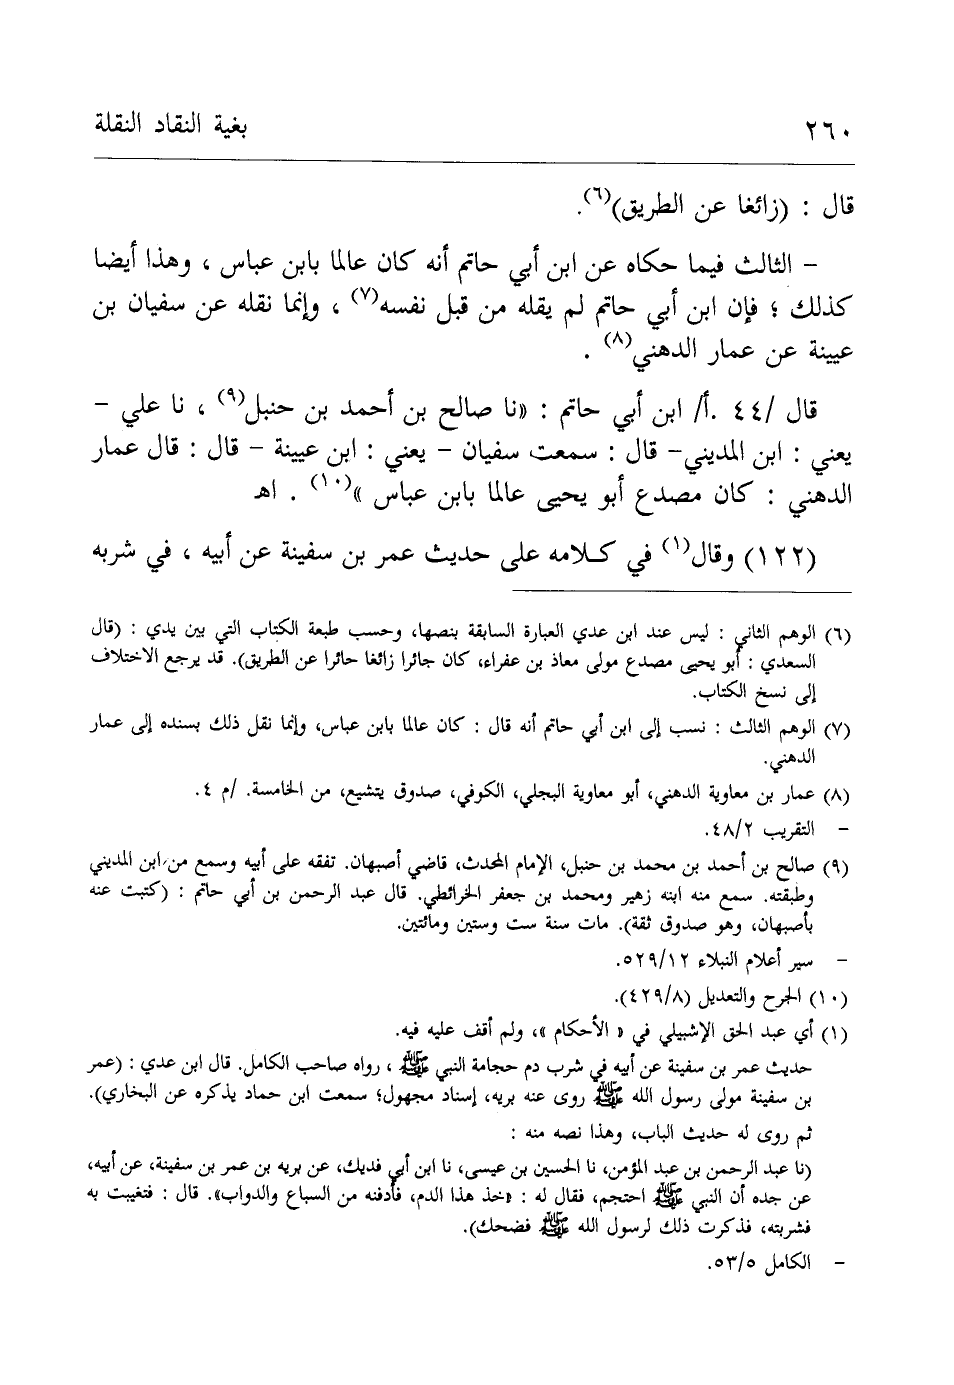 ٢٦٠ بغية النقاد النقلة
قال : (زائغا عن الطريق)(٦).
– الثالث فيما حكاه عن ابن أبي حاتم أنه كان عالما بابن عباس ، وهذا أيضا
كذلك ؛ فإن ابن أبي حاتم لم يقله من قبل نفسه(٧) ، وإنما نقله عن سفيان بن
عيينة عن عمار الدهني(٨) .
قال /٤٤ .أ/ ابن أبي حاتم : «نا صالح بن أحمد بن حنبل(٩) ، نا علي –
يعني : ابن المديني– قال : سمعت سفيان – يعني : ابن عيينة – قال : قال عمار
الدهني : كان مصدع أبو يحيى عالما بابن عباس »(١٠) . اهـ
(١٢٢) وقال(١) في كـلامه على حديث عمر بن سفينة عن أبيه ، في شربه
(٦) الوهم الثاني : ليس عند ابن عدي العبارة السابقة بنصها، وحسب طبعة الكتاب التي بين يدي : (قال
السعدي : أبو يحيى مصدع مولى معاذ بن عفراء، كان جائرا زائغا حائرا عن الطريق). قد يرجع الاختلاف
إلى نسخ الكتاب.
(٧) الوهم الثالث : نسب إلى ابن أبي حاتم أنه قال : كان عالما بابن عباس، وإنما نقل ذلك بسنده إلى عمار
الدهني.
(٨) عمار بن معاوية الدهني، أبو معاوية البجلي، الكوفي، صدوق يتشيع، من الخامسة. /م ٤.
– التقريب ٤٨/٢.
(٩) صالح بن أحمد بن محمد بن حنبل، الإمام المحدث، قاضي أصبهان. تفقه على أبيه وسمع من ابن المديني
وطبقته. سمع منه ابنه زهير ومحمد بن جعفر الخرائطي. قال عبد الرحمن بن أبي حاتم : (كتبت عنه
بأصبهان، وهو صدوق ثقة). مات سنة ست وستين ومائتين.
– سير أعلام النبلاء ٥٢٩/١٢.
(١٠) الجرح والتعديل (٤٢٩/٨).
(١) أي عبد الحق الإشبيلي في « الأحكام »، ولم أقف عليه فيه.
حديث عمر بن سفينة عن أبيه في شرب دم حجامة النبي ﷺ ، رواه صاحب الكامل. قال ابن عدي : (عمر
بن سفينة مولى رسول الله ﷺ روى عنه بريه، إسناد مجهول؛ سمعت ابن حماد يذكره عن البخاري).
ثم روى له حديث الباب، وهذا نصه منه :
(نا عبد الرحمن بن عبد المؤمن، نا الحسين بن عيسى، نا ابن أبي فديك، عن بريه بن عمر بن سفينة، عن أبيه،
عن جده أن النبي ﷺ احتجم، فقال له : «خذ هذا الدم، فأدفنه من السباع والدواب». قال : فتغيبت به
فشربته، فذكرت ذلك لرسول الله ﷺ فضحك).
– الكامل ٥٣/٥.